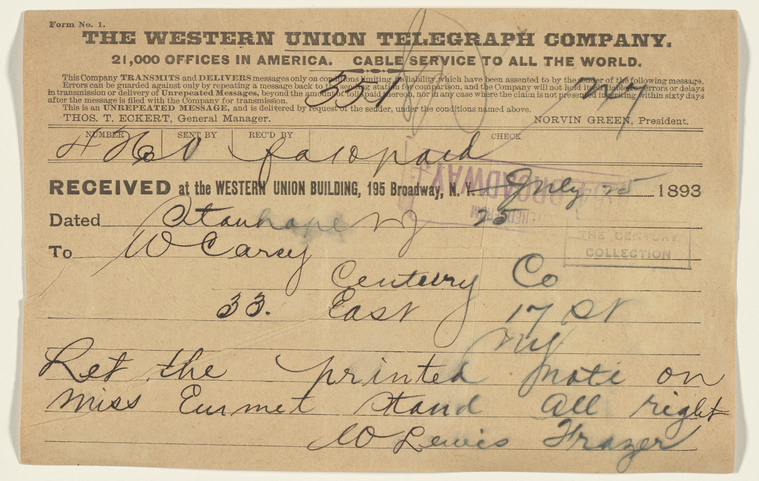 Form No. 1.
THE WESTERN UNION TELEGRAPH COMPANY.
21,000 OFFICES IN AMERICA. CABLE SERVICE TO ALL THE WORLD.
This Company TRANSMITS and DELIVERS messages only on conditions limiting its liability, which have been assented to by the sender of the following message.
Errors can be guarded against only by repeating a message back to the sending station for comparison, and the Company will not hold itself liable for errors or delays
in transmission or delivery of Unrepeated Messages, beyond the amount of tolls paid thereon, nor in any case where the claim is not presented in writing within sixty days
after the message is filed with the Company for transmission.
This is an UNREPEATED MESSAGE, and is delivered by request of the sender, under the conditions named above.
THOS. T. ECKERT, General Manager. NORVIN GREEN, President.
NUMBER SENT BY REC'D BY CHECK
paid
RECEIVED at the WESTERN UNION BUILDING, 195 Broadway, N. Y. July 25 1893
Dated Stanhope NJ 25
To W Carey
Century Co
33. East 17 St
NY
Let the printed note on
Miss Emmet stand all right
W Lewis Frazer
BROADWAY
THE CENTURY
COLLECTION